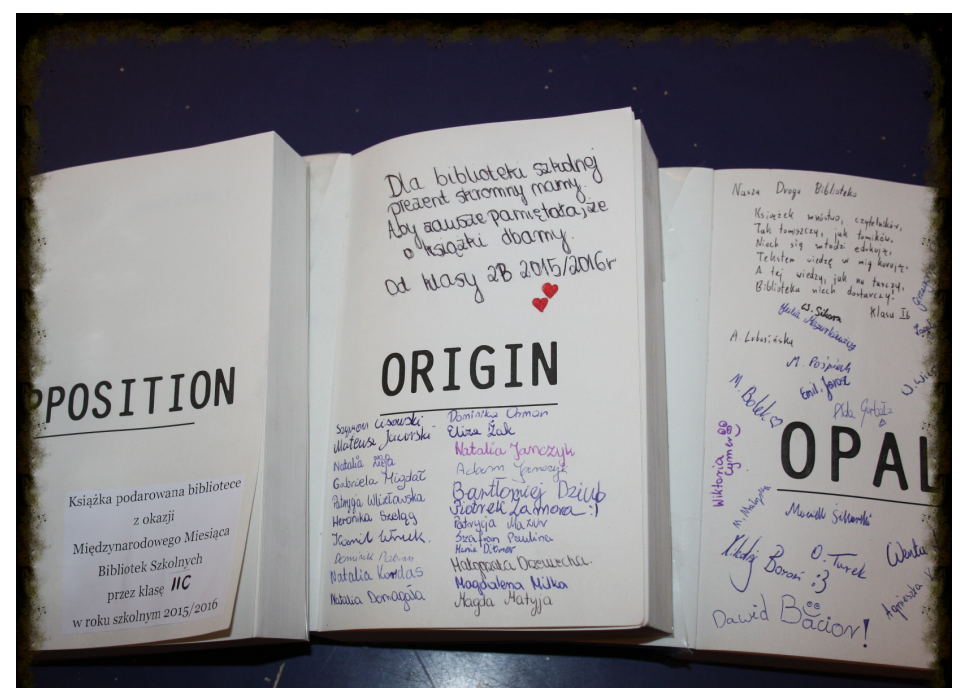 PPOSITION
Książka podarowana bibliotece
z okazji
Międzynarodowego Miesiąca
Bibliotek Szkolnych
przez klasę IIC
w roku szkolnym 2015/2016
Dla biblioteki szkolnej
prezent skromny mamy.
Aby zawsze pamiętała, że
o książki dbamy.
Od klasy 2B 2015/2016r
ORIGIN
Szymon Cisowski
Mateusz Jaworski
Natalia Zięja
Gabriela Migdał
Patrycja Wlizłowska
Weronika Szeląg
Kamil Wnuk.
Dominik
Natalia Kardas
Natalia Domagała
Dominika Chmon
Eliza Żak
Natalia Janczyk
Adam Janczyk
Bartłomiej Dziub
Piotrek Zamora :)
Patrycja Mazur
Szafran Paulina
Hania Ditmer
Małgorzata Drzewiecka.
Magdalena Milka
Magda Matyja
Nasza Droga Biblioteko
Książek mnóstwo, czytelników,
Tak tomiszczy, jak tomików,
Niech się młodzi edukują,
Tekstem wiedzę w mig kierują.
A tej wiedzy, jak na tarczy,
Biblioteka niech dostarczy!
Klasa Ib
W. Sikora
Julia Mazurkiewicz
A. Lubosińska
M. Pośpiech
Emil. Jarosz
M. Bołek
OPAL
Wiktoria
Maciek Sikorski
Mikołaj Boroń :3
O. Turek
Wenka
Agnieszka
Dawid Bacior!